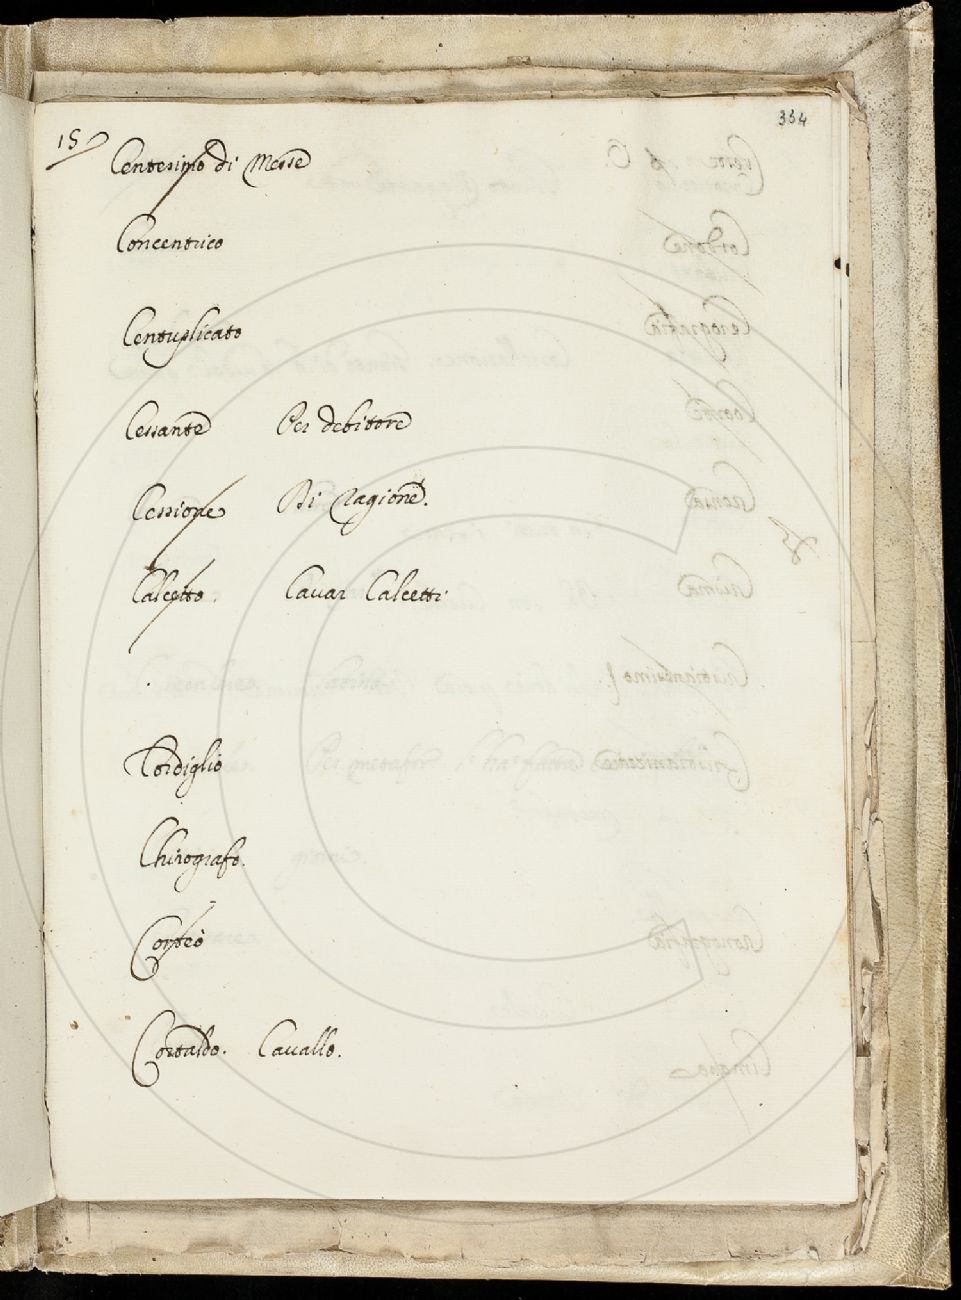 334
15
Centesimo di Messe
Concentrico
Centuplicato
Cessante Per debitore
Cessione Di ragione.
Calcetto. Cavar Calcetti
Cordiglio
Chirografo.
Corteo
Cortaldo. Cavallo.